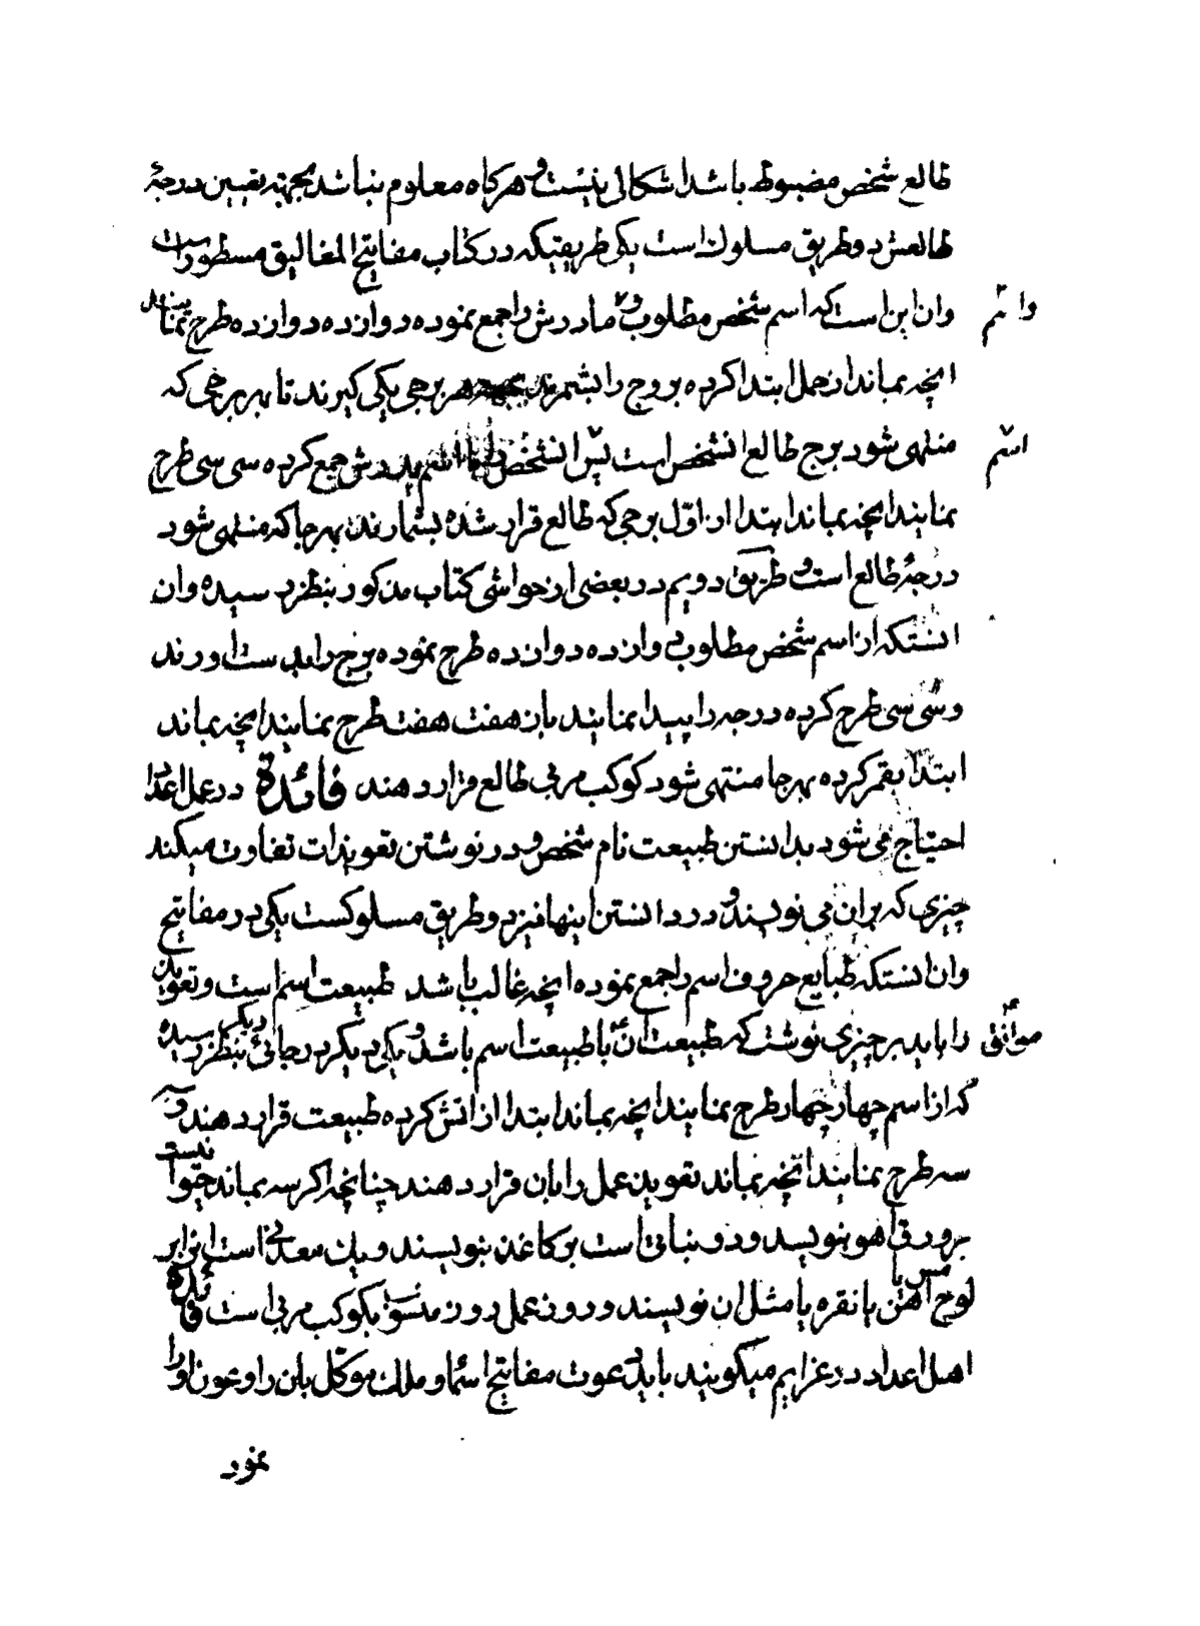 طالع شخص مضبوط باشد اشکالی نیست و هرکاه معلوم نباشد بجهة تعیین درجهٔ
طالعش دو طریق مسلوک است یکی طریقیکه در کتاب مفاتیح المغالیق مسطور است
وان این است که اسم شخص مطلوب و مادرش را جمع نموده دوازده دوازده طرح نمایند
واسم
انچه بماند از حمل ابتدا کرده بروج را بشمرند هر برجی یکی کیرند تا بهر برجی که
منتهی شود برج طالع انشخص است پس انشخص را با اسم پدرش جمع کرده سی سی طرح
اسم
نمایند انچه بماند ابتدا از اول برجی که طالع قرار شده بشمارند بهر جا که منتهی شود
درجهٔ طالع است و طریق دویم در بعضی از حواشی کتاب مذکور بنظر رسیده وان
انستکه از اسم شخص مطلوب دوازده دوازده طرح نموده برج را بدست اورند
وسی سی طرح کرده درجه را پیدا نمایند باز هفت هفت طرح نمایند انچه بماند
ابتدا بقمر کرده بهر جا منتهی شود کوکب مربی طالع قرار دهند فائدة در عمل اعدا
احتیاج می شود بدانستن طبیعت نام شخص و در نوشتن تعویذات تفاوت میکند
چیزی که بران می نویسند و در دانستن اینها نیز دو طریق مسلوکست یکی در مفاتیح
وان انستکه طبایع حروف اسم را جمع نموده انچه غالب باشد طبیعت اسم است و تعویذ
را باید بر چیزی نوشت که طبیعت ان با طبیعت اسم باشد و یکی دیکر در جائی دیکر بنظر رسیده
موافق
که از اسم چهار چهار طرح نمایند انچه بماند ابتدا از اتش کرده طبیعت قرار دهند و سه
سه طرح نمایند انچه بماند تعویذ عمل را بان قرار دهند چنانچه اکر سه بماند حیوانیست
بر ورق اهو بنویسد و دو نباتی است بر کاغذ بنویسند و یک معدنی است انرا بر
لوح اهن یا مس یا نقره یا مثل ان نویسند و روز عمل روز منسوب بکوکب مربی است فائدة
اهل اعداد در عزایم میکویند باید دعوت مفاتیح اسما و ملک موکل بان را و عون او را
نمود